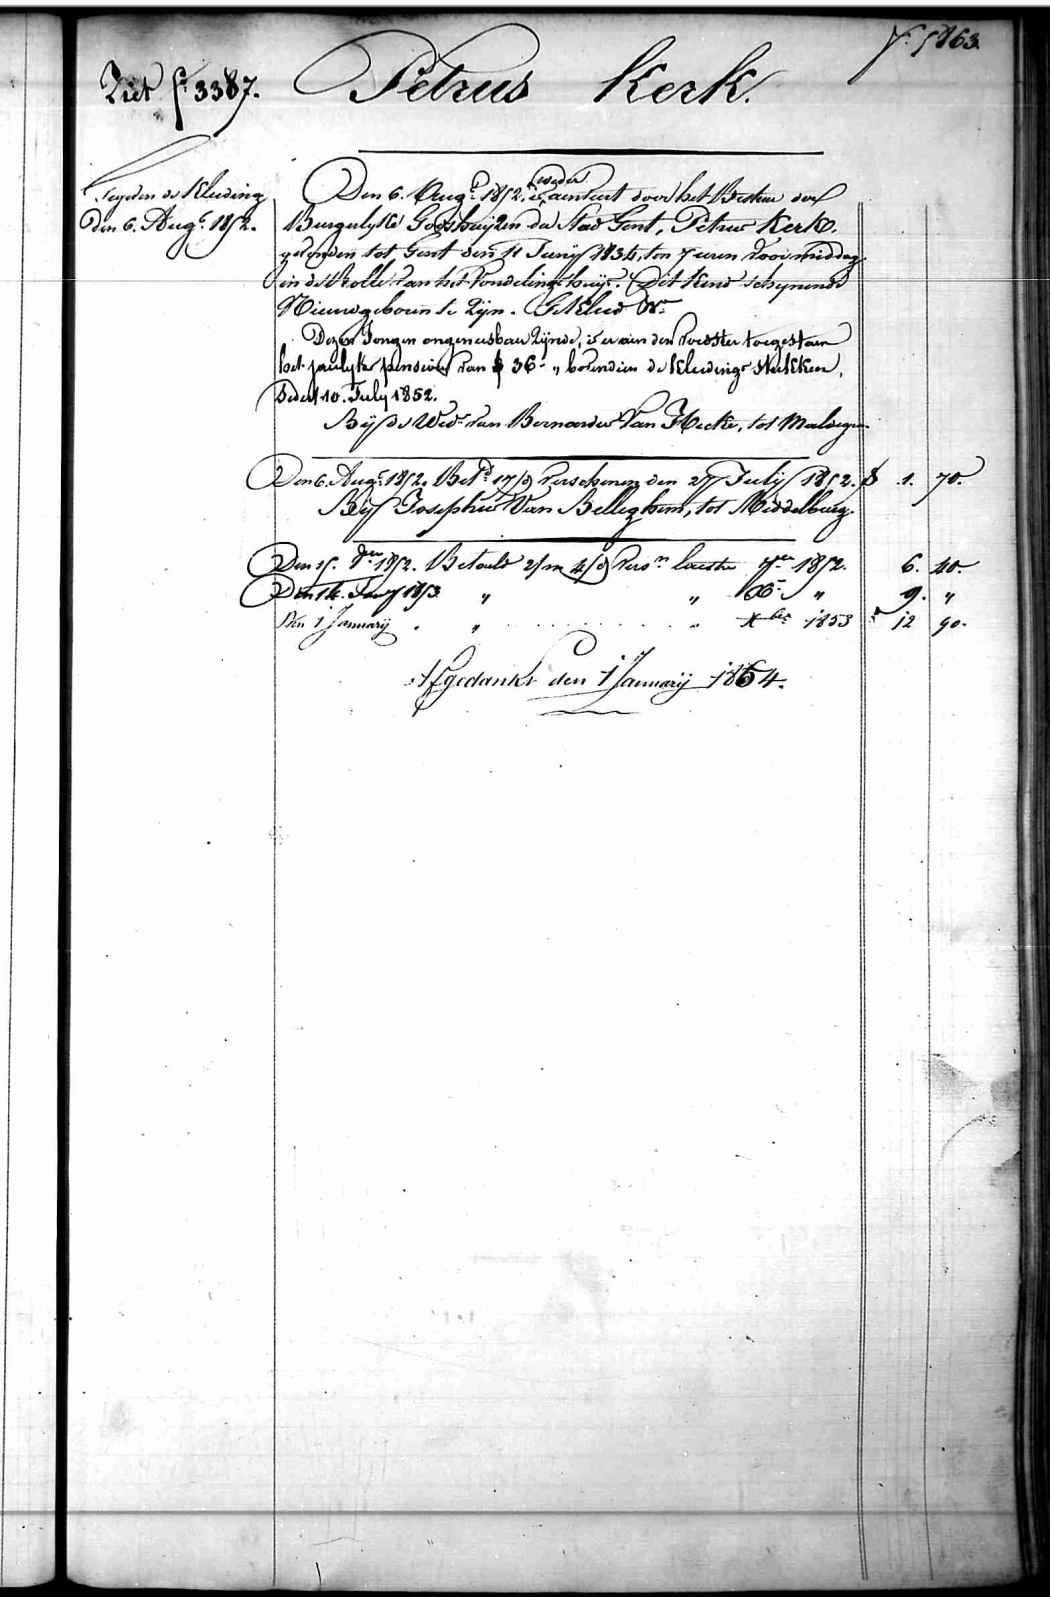 f.º 5863.
Ziet fº 3387. Petrus Kerk.
de Kleeding
den 6. Augt 1852.
Den 6. Augt 1852, is weder aenveert door het Bestier der
Burgerlyke Godshuijzen der Stad Gent, Petrus Kerk,
gevonden tot Gent den 11 Juny 1834, ten 7 uren voormiddag
in de Rolle van het Vondelinghuijs. Dit Kind schynende
Nieuwgeboren te Zijn. Gekleed &a
Dezen Jongen ongeneesbaer Zijnde, is er aen den voedster toegestaen
het jaerlyks pensioen van 36 - „ bovendien de Kleedings Stukken,
Sedert 10. July 1852.
Bij de Wede van Bernardus Van Hecke, tot Maldegem
Den 6. Augt 1852. Betd 17/d Verschenen den 27 July 1852. 1. 70.
Bij Josephus Van Belleghem, tot Middelburg.
Den 15. 1852. Betaeld 2/m 4/d Versn laesten 7ber 1852. 6. 40.
Den 14. Jany 1853 „ „ Xbr „ 9. „
Den 1 Januarij „ „ Xber 1853 12 90.
Afgedankt den 1 Januarij 1854.